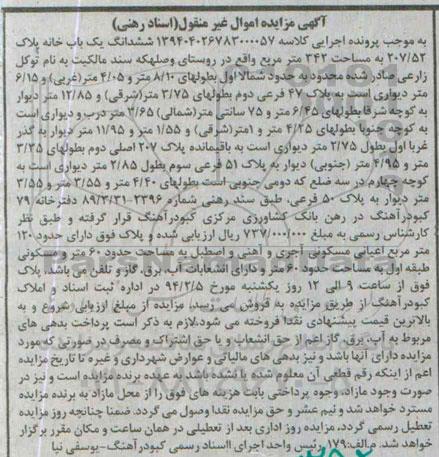 آگهی مزایده اموال غیر منقول(اسناد رهنی)
به موجب پرونده اجرایی کلاسه ۱۳۹۴۰۴۰۲۶۷۸۳۰۰۰۰۵۷ ششدانگ یک باب خانه پلاک
۲۰۷/۵۲ به مساحت ۲۴۲ متر مربع واقع در روستای وصلهکه سند مالکیت به نام توکل
زارعی صادر شده محدود به حدود شمالا اول بطولهای ۸/۱۰ متر و ۴/۰۵ متر(غربی) و ۶/۱۵
متر دیواری است به پلاک ۴۷ فرعی دوم بطولهای ۳/۷۵ متر(شرقی) و ۱۲/۸۵ متر دیوار
به کوچه شرقا بطولهای ۶/۴۵ متر و ۷۵ سانتی متر(شمالی) ۳/۶۵ متر درب و دیواری است
به کوچه جنوبا بطولهای ۴/۲۵ متر و ۱متر(شرقی) و ۱/۵۵ متر و ۱۱/۹۵ متر دیوار به گذر
غربا اول بطول ۲/۷۵ متر دیواری است به باقیمانده پلاک ۲۰۷ اصلی دوم بطولهای ۳/۲۵
متر و ۴/۹۵ متر (جنوبی) دیوار به پلاک ۵۱ فرعی سوم بطول ۲/۸۵ متر دیواری است به
کوچه چهارم در سه ضلع که دومی جنوبی است بطولهای ۴/۴۰ متر و ۳/۵۵ متر و ۳/۵۵
متر دیوار به پلاک ۵۰ فرعی، طبق سند رهنی شماره ۲۳۹۶-۸۹/۳/۳۱ دفترخانه ۷۹
کبودرآهنگ در رهن بانک کشاورزی مرکزی کبودرآهنگ قرار گرفته و طبق نظر
کارشناس رسمی به مبلغ ۷۳۷/۰۰۰/۰۰۰ ریال ارزیابی شده و پلاک فوق دارای حدود ۱۲۰
متر مربع اعیانی مسکونی آجری و آهنی و اصطبل به مساحت حدود ۶۰ متر و مسکونی
طبقه اول به مساحت حدود ۶۰ متر و دارای انشعابات آب، برق، گاز و تلفن می باشد، پلاک
فوق از ساعت ۹ الی ۱۲ روز یکشنبه مورخ ۹۴/۲/۵ در اداره ثبت اسناد و املاک
کبودرآهنگ از طریق مزایده به فروش می رسد، مزایده از مبلغ ارزیابی شروع و به
بالاترین قیمت پیشنهادی نقدا فروخته می شود،لازم به ذکر است پرداخت بدهی های
مربوط به آب، برق، گاز اعم از حق انشعاب و یا حق اشتراک و مصرف در صورتی که مورد
مزایده دارای آنها باشد و نیز بدهی های مالیاتی و عوارض شهرداری و غیره تا تاریخ مزایده
اعم از اینکه رقم قطعی آن معلوم شده یا نشده باشد به عهده برنده مزایده است و نیز در
صورت وجود مازاد، وجوه پرداختی بابت هزینه های فوق را از محل مازاد به برنده مزایده
مسترد خواهد شد و نیم عشر و حق مزایده نقدا وصول می گردد. ضمنا چنانچه روز مزایده
تعطیل رسمی گردد، مزایده روز اداری بعد از تعطیلی در همان ساعت و مکان مقرر برگزار
خواهد شد. م.الف:۱۷۹ رئیس واحد اجرای ااسناد رسمی کبودرآهنگ-یوسفی نیا